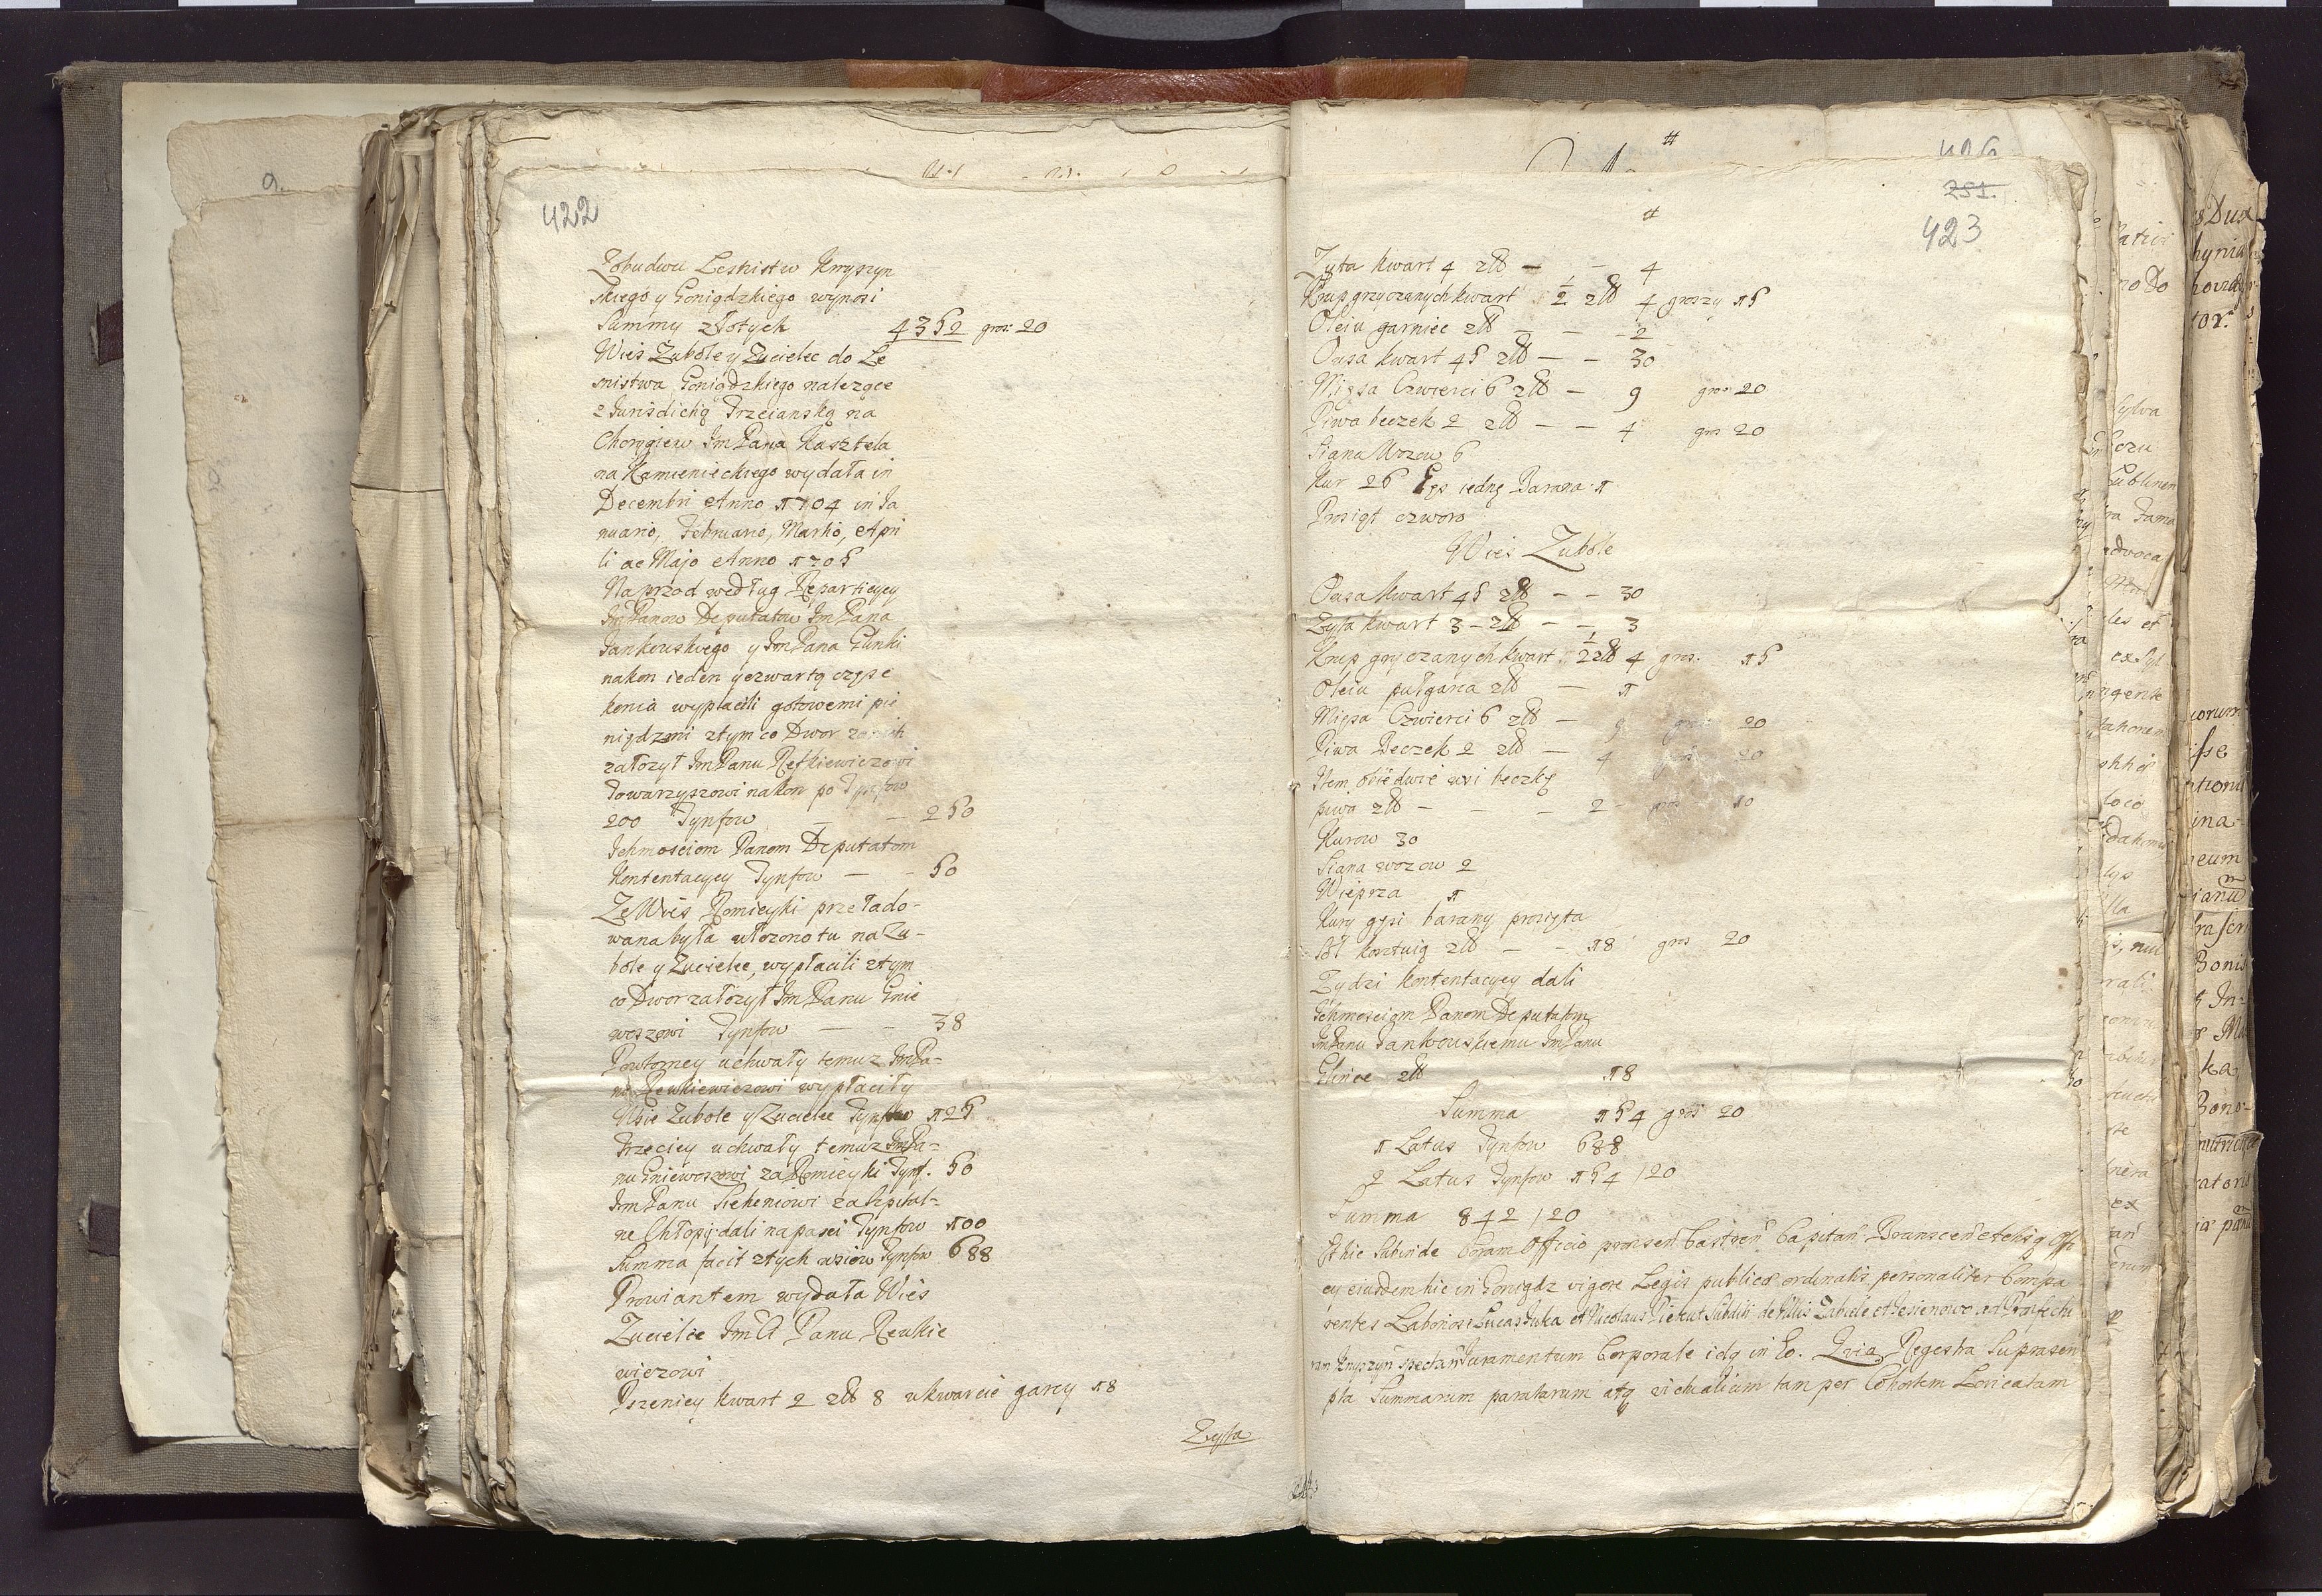 422
Zobudwu Lesnistw Knyszyn
skiego y Goniądzkiego wynosi
Summy złotych 4352 gros 20
Wieś Zubole y Zucielec do Le
snistwa Goniądzkiego nalezące
z Jurisdictią Trzcianską na
Chorągiew Jm Pana Kasztela
na Kamienieckiego wydała in
Decembri Anno 1704 in Ja
nuario, Februario, Martio, Apri
li ac Majo Anno 1705
Naprzod według Repartycyey
Jm Panow Deputatow Jm Pana
Jankowskiego y Jm Pana Glinki
na kon ieden y czwartą częsc
konia wypłacili gotowemi pie
niądzmi z tym co Dwor za nich
załozył Jm Panu Refkiewiczowi
Towarzyszowi na kon po Tynfow
200 Tynfow — — 250
Ichmosciom Panom Deputatom
Kontentacyey Tynfow — - 50
Ze Wieś Romieyki przełado-
wana była włozono tu na Zu-
bole y Zucielec, wypłacili z tym
co Dwor załozył Jm Panu Gnie
woszowi Tynfow — — 38
Powtorney uchwały temuz Jm Pa-
nu Rewkiewiczowi wypłaciły
Wsie Zubole y Zucielec Tynfow 125
Trzeciey uchwały temuz Jm Pa-
nu Gniewoszowi za Romieyki Tynf. 50
Jm Panu Siekeniowi za Szpital-
ne Chłopi dali na pasci Tynfow 100
Summa facit z tych wsiow Tynfow 688
Prowiantem wydała Wieś
Zucielec Jm Panu Rewkie
wiczowi
Pszenicy kwart 2 zł 8 w kwarcie garcy 18
Zyta
#
426
#
251.
423
Zyta kwart 4 zł — — 4
Krup gryczanych kwart ½ zł 4 groszy 15
Oleiu garniec zł — — 2
Owsa kwart 45 zł — — 30
Mięsa Czwierci 6 zł — 9 gros 20
Piwa beczek 2 zł — — 4 gros 20
Siana Wozow 6
Kur 26 Gęs iednę Barana 1
Prosiąt czworo
Wieś Zubole
Owsa kwart 45 zł — — 30
Zyta kwart 3 - zł — — 3
Krup gryczanych kwart ½ zł 4 gros. 15
Oleiu pułgarca zł — 1
Mięsa Czwierci 6 zł — 9 gros 20
Piwa Beczek 2 zł — 4 gros 20
Item obiedwie wsi beczkę
piwa zł — — — 2 - gros 10
Kurow 30
Siana wozow 2
Wieprza 1
Kury gęsi barany prosięta
kosztuią zł — — 18 gros 20
Zydzi kontentacyey dali
Ichmosciom Panom Deputatom
Jm Panu Jankowskiemu Jm Panu
Glince zł 18
Summa 154 gros 20
1 Latus Tynfow 688
2 Latus Tynfow 154 / 20
Summa 842 / 20
Et hic Subinde Coram Officio praesen Castren Capitan Branscen etchis q Offi
cy eiusdem hic in Goniądz vigore Legis publicae ordinatis personaliter Compa
rentes Laboriosi Lucas Juka et Nicolaus Piekut Subditi de Villis Zubole et Jesienowo ad Praefectu
ram Knyszyn spectan Juramentum Corporale idq in Eo. Quia Regestra Suprascri
pta Summarum paratarum atq victualium tam per Cohortem Loricatam